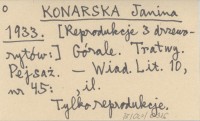 o KONARSKA Janina
1933. [Reprodukcje 3 drzewo-
rytów:] Górale. Tratwy.
Pejzaż. — Wiad. Lit. 10,
nr 45: , il.
Tylko reprodukcje.